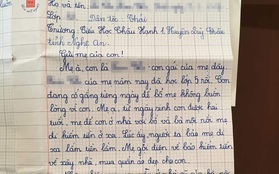 Họ và tên:
Lớp Dân tộc Thái
Trường: Tiểu Học Châu Hạnh 1 Huyện Quỳ Châu
tỉnh Nghệ An.
Gửi mẹ của con!
Mẹ à, con là con gái của mẹ đây
của mẹ năm nay đã học lớp 5 rồi. Con
đang cố gắng từng ngày để bố mẹ không buồn
lòng vì con. Mẹ ạ, từ ngày sinh con được hai
tuổi, mẹ để con ở nhà với bố và bà nội nơi mẹ
đi kiếm tiền ở xa. Lúc ấy người ta bảo mẹ đi
xa làm tiền lắm. Mẹ gọi điện về bảo kiếm tiền
về xây nhà, mua quần áo đẹp cho con.